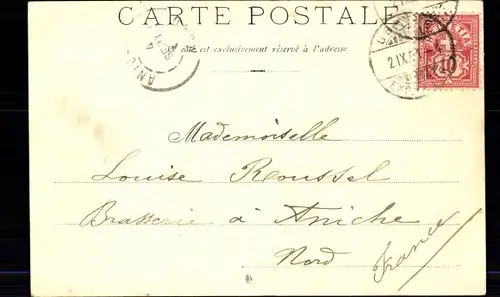 CARTE POSTALE
côté est exclusivement réservé à l'adresse
2.IX.0
10
Mademoiselle
Louise Roussel
Brasserie à Aniche
Nord
France